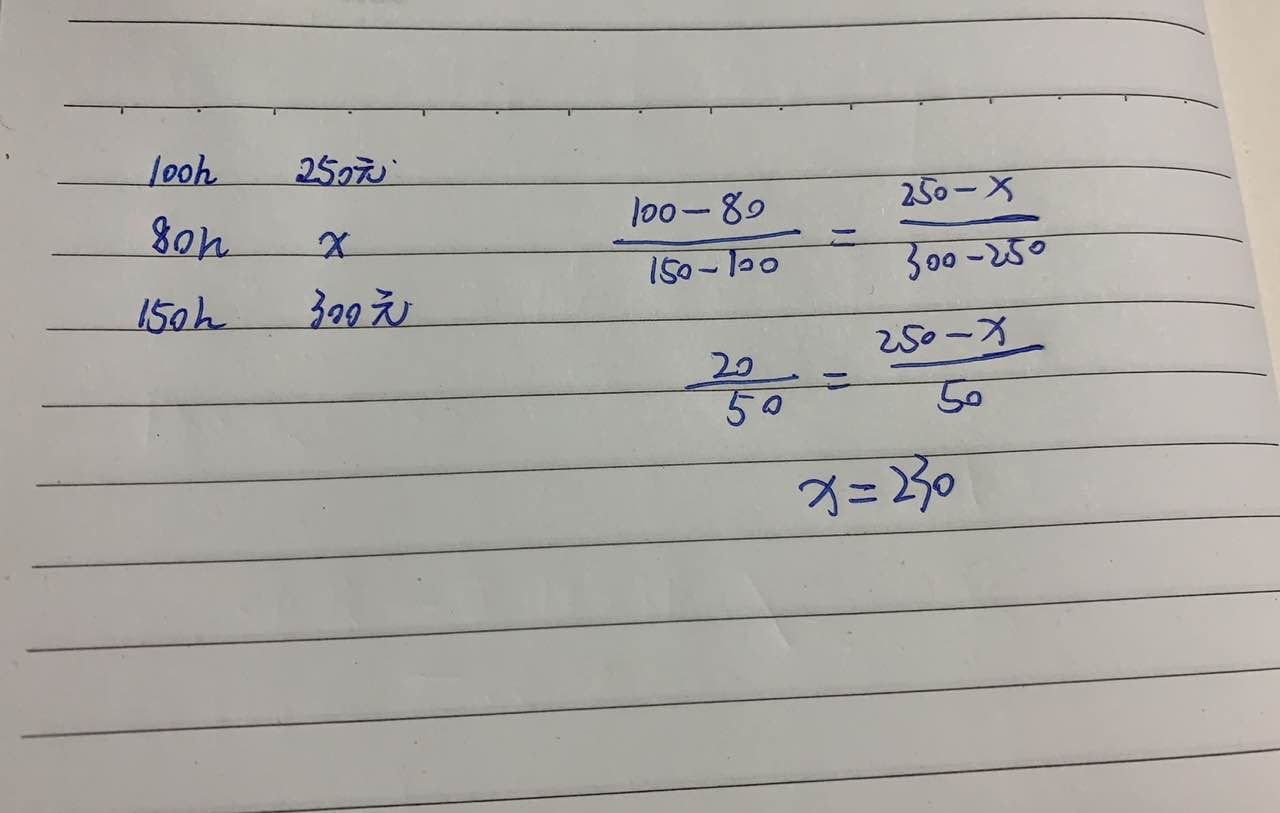 100h 250元
80h x
150h 300元
100-80 / 150-100 = 250-x / 300-250
20 / 50 = 250-x / 50
x=230